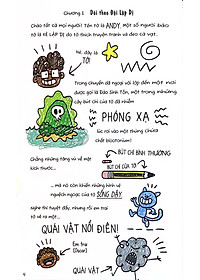 Chương 1 Dõi theo Đội Lập Dị
Chào tất cả mọi người! Tên tớ là ANDY, một số người bảo
tớ là KẺ LẬP DỊ do tớ thích truyện tranh và đeo cà vạt.
Hê, đây là
TỚ!
Trong chuyến dã ngoại với lớp đến một nơi
được gọi là Đảo Sinh Tồn, một trong những
cây bút chì của tớ đã nhiễm
PHÓNG XẠ
lúc rơi vào một thùng chứa
chất blootonium!
BÚT CHÌ BÌNH THƯỜNG
Chẳng những tăng vị về mặt
kích thước...
BÚT CHÌ CỦA TỚ
... mà nó còn khiến những hình vẽ
nguệch ngoạc của tớ SỐNG DẬY.
Nghe thì tuyệt đấy, nhưng rồi em trai
tớ vẽ ra một...
QUÁI VẬT NỔI ĐIÊN!
Em trai
(Oscar)
QUÁI VẬT
4